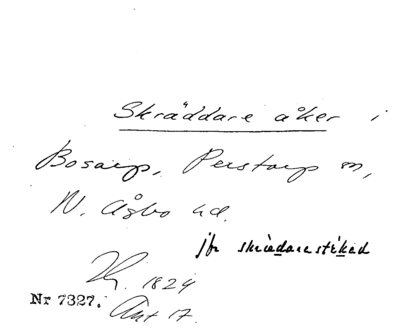 Skräddare åker i
Bosarp, Perstorp sn,
N. Åsbo hd.
jfr skrädarestÿked
1824
Nr 7327. Akt 17.